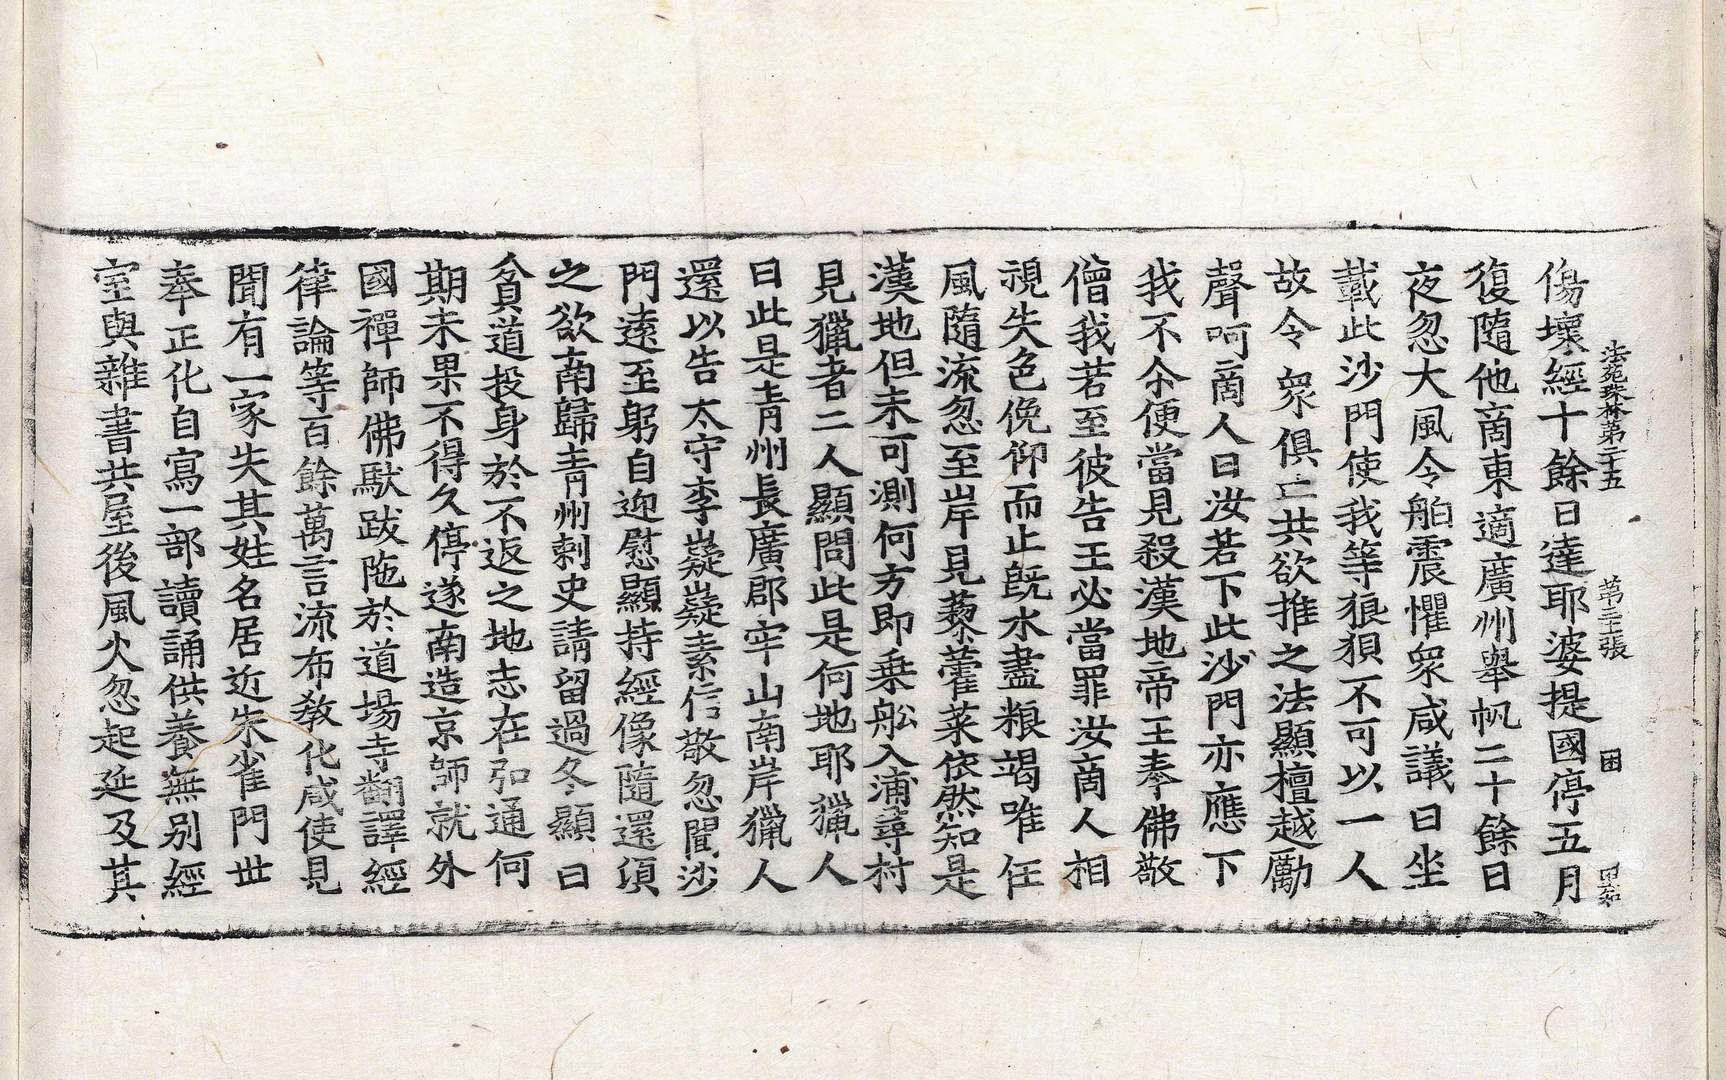 法苑珠林第二十五 第三十三張 困
傷壞經十餘日達耶婆提國停五月
復隨他商東適廣州舉帆二十餘日
夜忽大風令舶震懼衆咸議曰坐
載此沙門使我等狼狽不可以一人
故令衆俱亡共欲推之法顯檀越勵
聲呵商人曰汝若下此沙門亦應下
我不尒便當見殺漢地帝王奉佛敬
僧我若至彼告王必當罪汝商人相
視失色俛仰而止旣水盡粮竭唯任
風隨流忽至岸見藜藿菜依然知是
漢地但未可測何方即乗舩入浦尋村
見獵者二人顯問此是何地耶獵人
曰此是青州長廣郡牢山南岸獵人
還以告太守李嶷嶷素信敬忽聞沙
門遠至躬自迎慰顯持經像隨還須
之欲南歸青州刺史請留過冬顯曰
貧道投身於不返之地志在弘通何
期未果不得久停遂南造京師就外
國禪師佛馱跋陁於道場寺翻譯經
律論等百餘萬言流布敎化咸使見
聞有一家失其姓名居近朱雀門世
奉正化自寫一部讀誦供養無别經
室與雜書共屋後風火忽起延及其